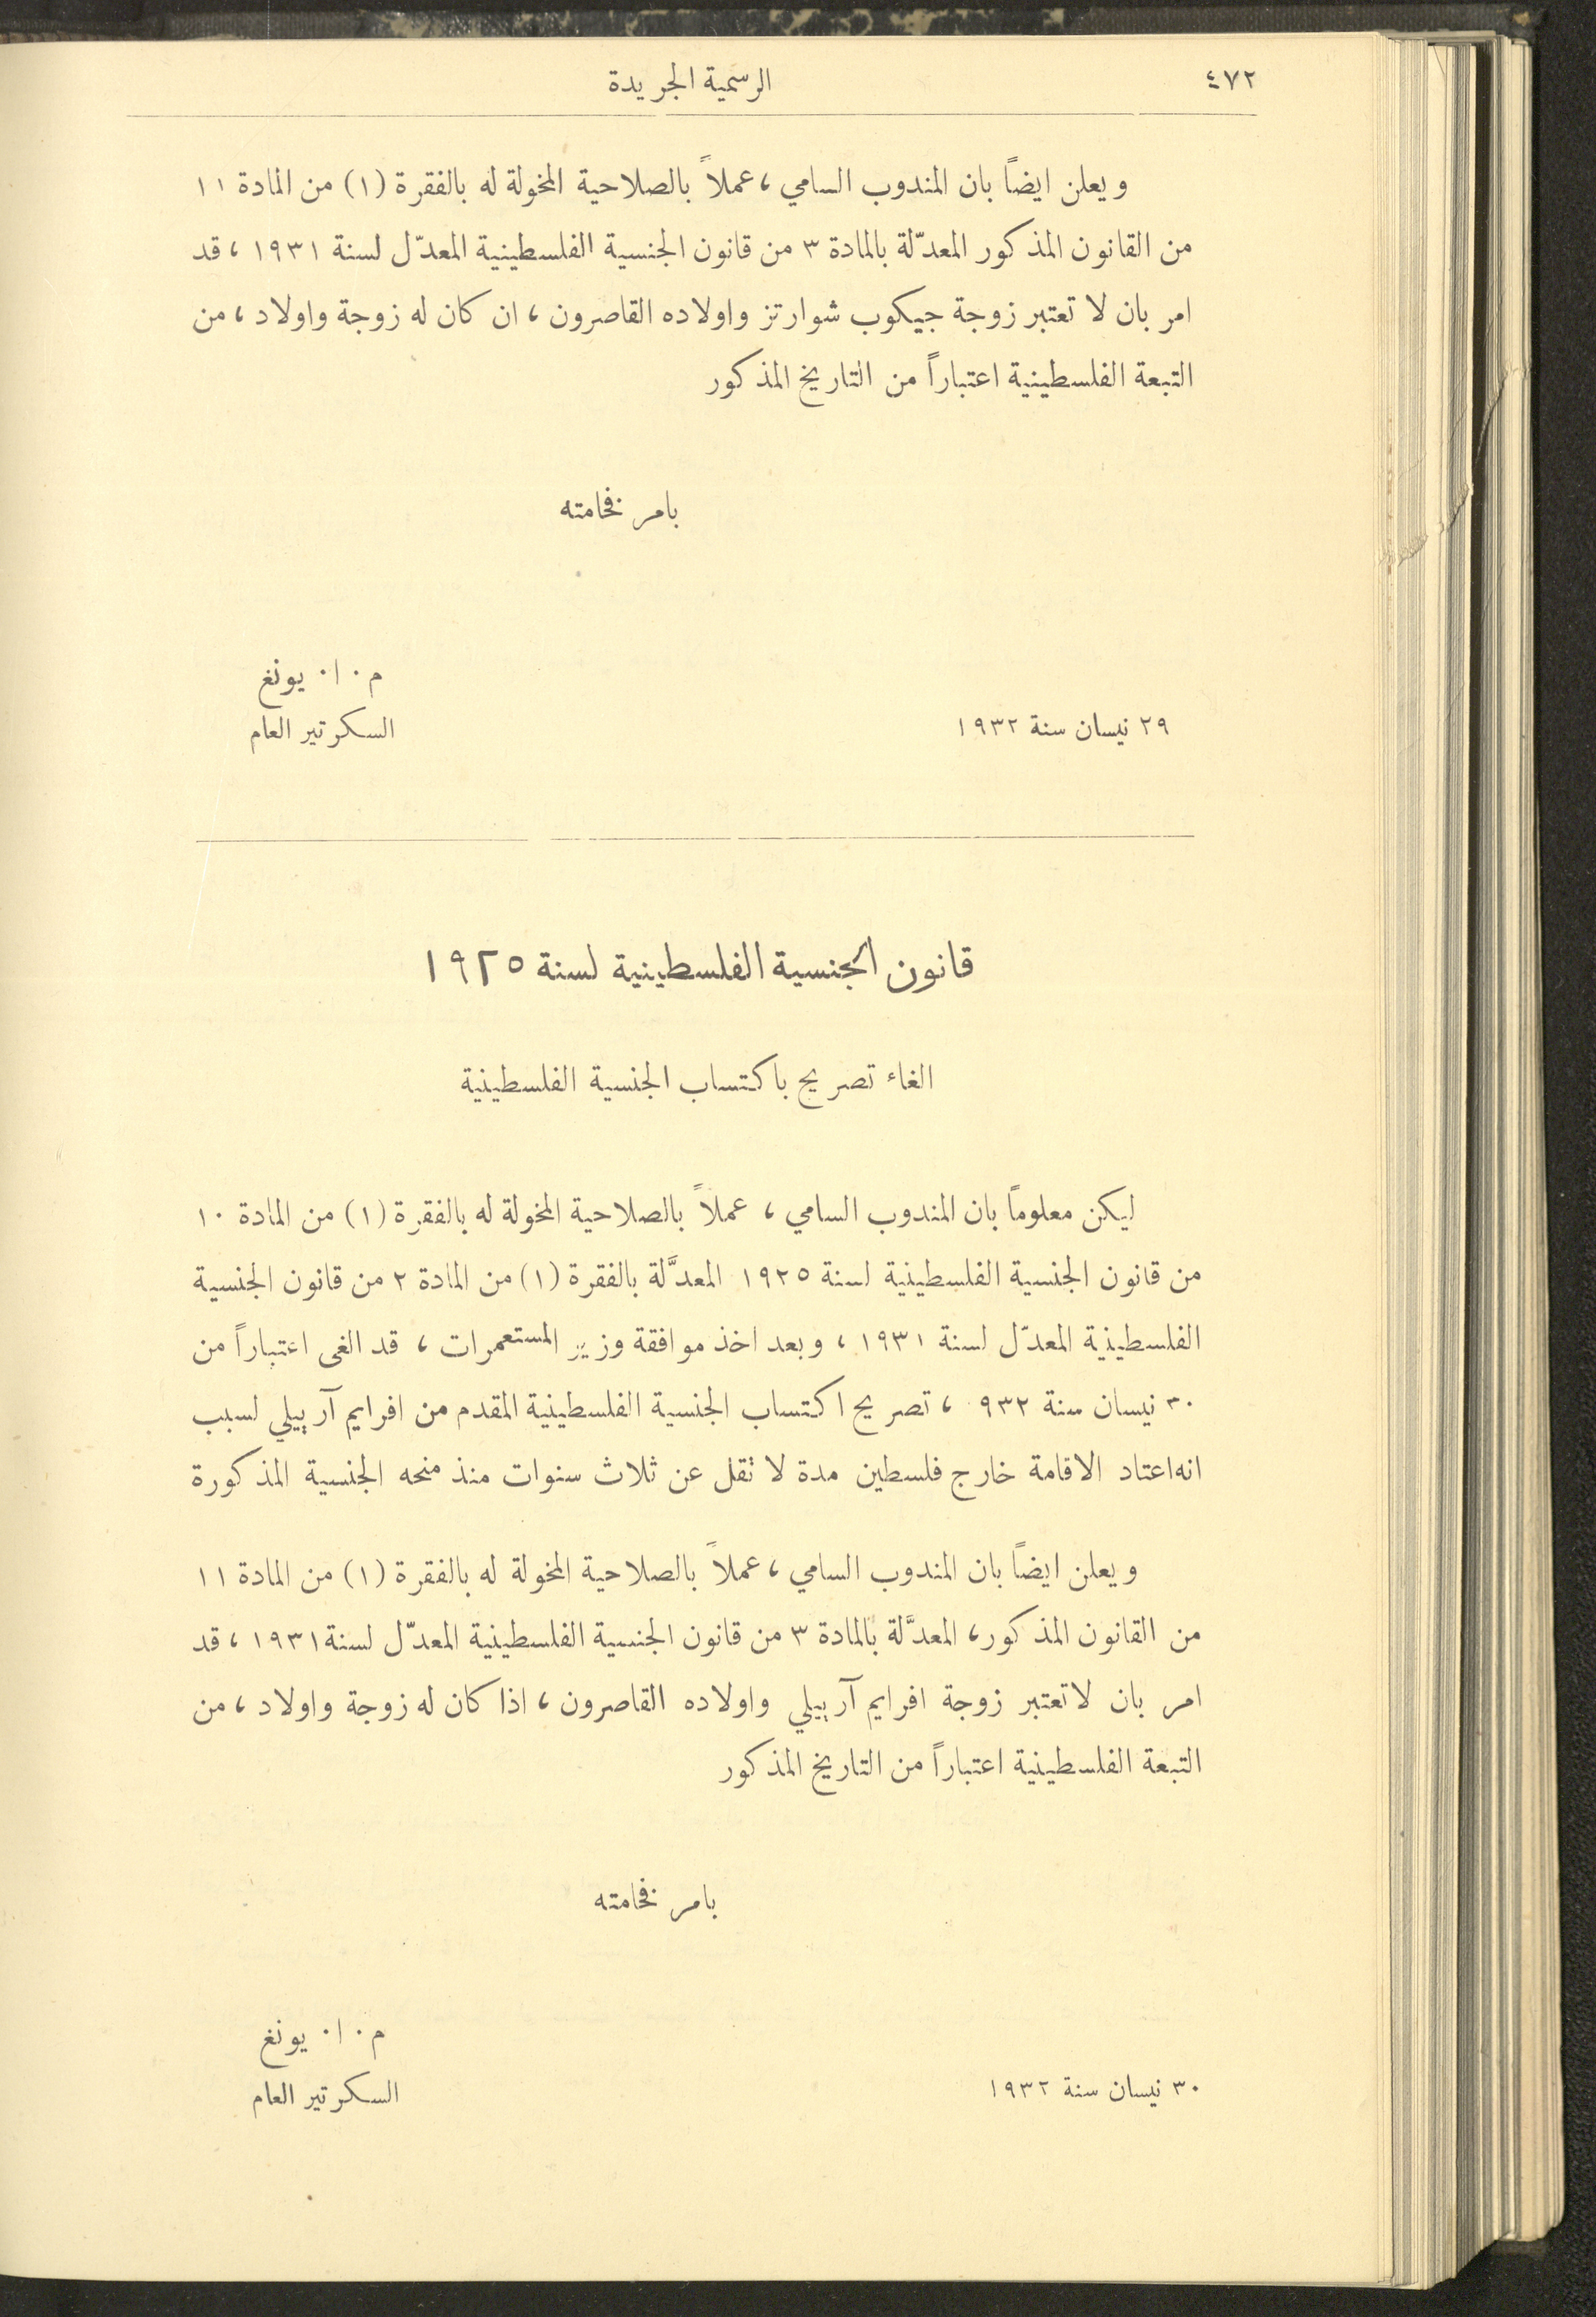 ٤٧٢
الرسمية الجريدة
ويعلن ايضاً بان المندوب السامي، عملاً بالصلاحية المخولة له بالفقرة (١) من المادة ١١
من القانون المذكور المعدّلة بالمادة ٣ من قانون الجنسية الفلسطينية المعدّل لسنة ١٩٣١، قد
امر بان لا تعتبر زوجة جيكوب شوارتز واولاده القاصرون، ان كان له زوجة واولاد، من
التبعة الفلسطينية اعتباراً من التاريخ المذكور
بامر فخامته
م٠ ا٠ يونغ
السكرتير العام
٢٩ نيسان سنة ١٩٣٢
قانون الجنسية الفلسطينية لسنة ١٩٢٥
الغاء تصريح باكتساب الجنسية الفلسطينية
ليكن معلوماً بان المندوب السامي، عملاً بالصلاحية المخولة له بالفقرة (١) من المادة ١٠
من قانون الجنسية الفلسطينية لسنة ١٩٢٥ المعدَّلة بالفقرة (١) من المادة ٢ من قانون الجنسية
الفلسطينية المعدّل لسنة ١٩٣١، وبعد اخذ موافقة وزير المستعمرات، قد الغى اعتباراً من
٣٠ نيسان سنة ٩٣٢، تصريح اكتساب الجنسية الفلسطينية المقدم من افرايم آربيلي لسبب
انه اعتاد الاقامة خارج فلسطين مدة لا تقل عن ثلاث سنوات منذ منحه الجنسية المذكورة
ويعلن ايضاً بان المندوب السامي، عملاً بالصلاحية المخولة له بالفقرة (١) من المادة ١١
من القانون المذكور، المعدَّلة بالمادة ٣ من قانون الجنسية الفلسطينية المعدّل لسنة ١٩٣١، قد
امر بان لا تعتبر زوجة افرايم آربيلي واولاده القاصرون، اذا كان له زوجة واولاد، من
التبعة الفلسطينية اعتباراً من التاريخ المذكور
بامر فخامته
م٠ ا٠ يونغ
السكرتير العام
٣٠ نيسان سنة ١٩٣٢